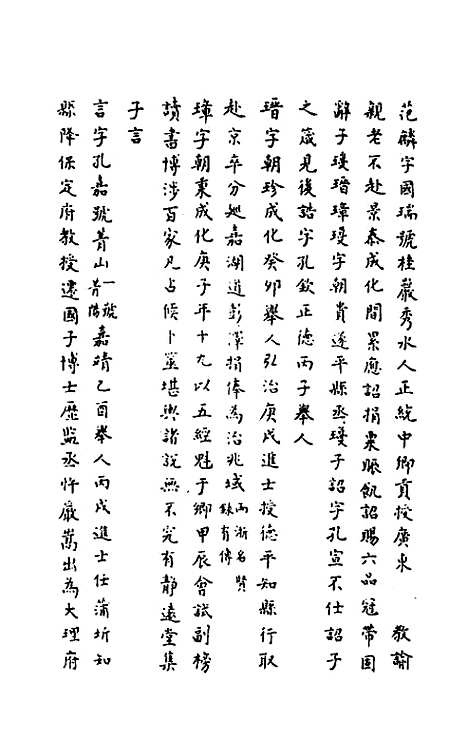 范麟字國瑞號桂巖秀水人正統中鄉貢授廣東　教諭
親老不赴景泰成化間累應詔捐粟賑飢詔賜六品冠帶固
辭子璦瑨璋璦字朝貴遂平縣丞璦子詔字孔宣不仕詔子
之箴見後誥字孔欽正德丙子舉人
瑨字朝珍成化癸卯舉人弘治庚戌進士授德平知縣行取
赴京卒分巡嘉湖道彭澤捐俸為治兆域兩浙名賢錄有傳
璋字朝秉成化庚子年十九以五經魁于鄉甲辰會試副榜
讀書博涉百家凡占候卜筮堪輿諸說無不究有靜遠堂集
子言
言字孔嘉號菁山一號菁陽嘉靖乙酉舉人丙戌進士仕蒲圻知
縣降保定府教授遷國子博士歷監丞忤嚴嵩出為大理府